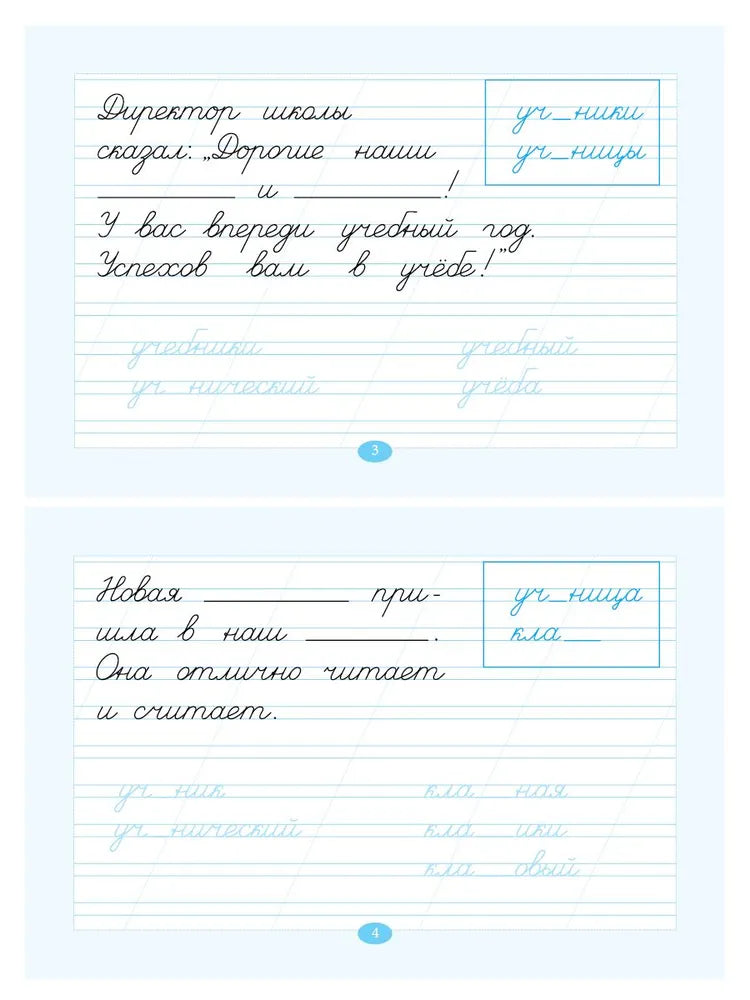 Директор школы
сказал: „Дорогие наши
__________ и __________!
У вас впереди учебный год.
Успехов вам в учёбе!”
уч_ники
уч_ницы
учебники учебный
уч нический учёба
3
Новая __________ при-
шла в наш _________.
Она отлично читает
и считает.
уч_ница
кла___
уч ник кла ная
уч нический кла ики
кла овый
4